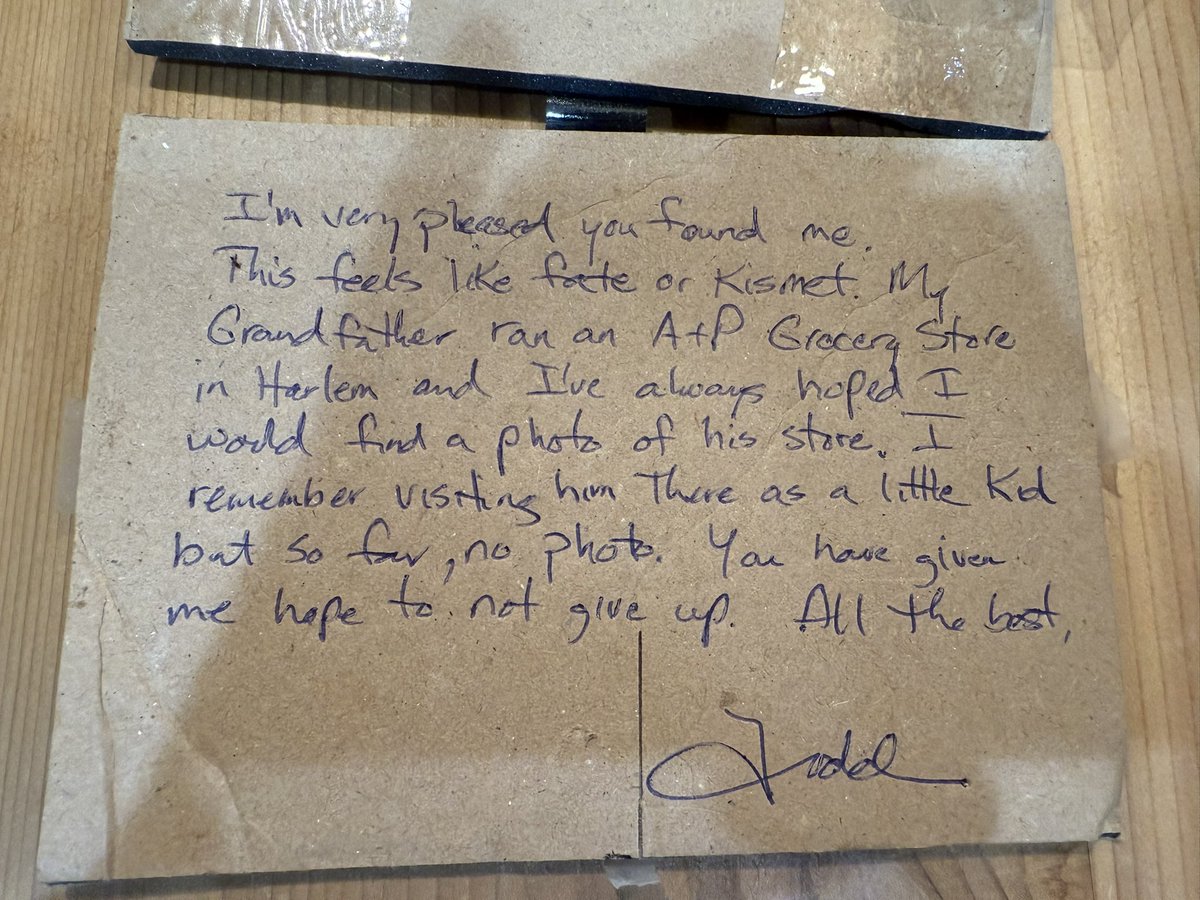 I'm very pleased you found me.
This feels like fate or Kismet. My
Grandfather ran an A+P Grocery Store
in Harlem and I've always hoped I
would find a photo of his store. I
remember visiting him There as a little Kid
but so far, no photo. You have given
me hope to not give up. All the best,
Todd